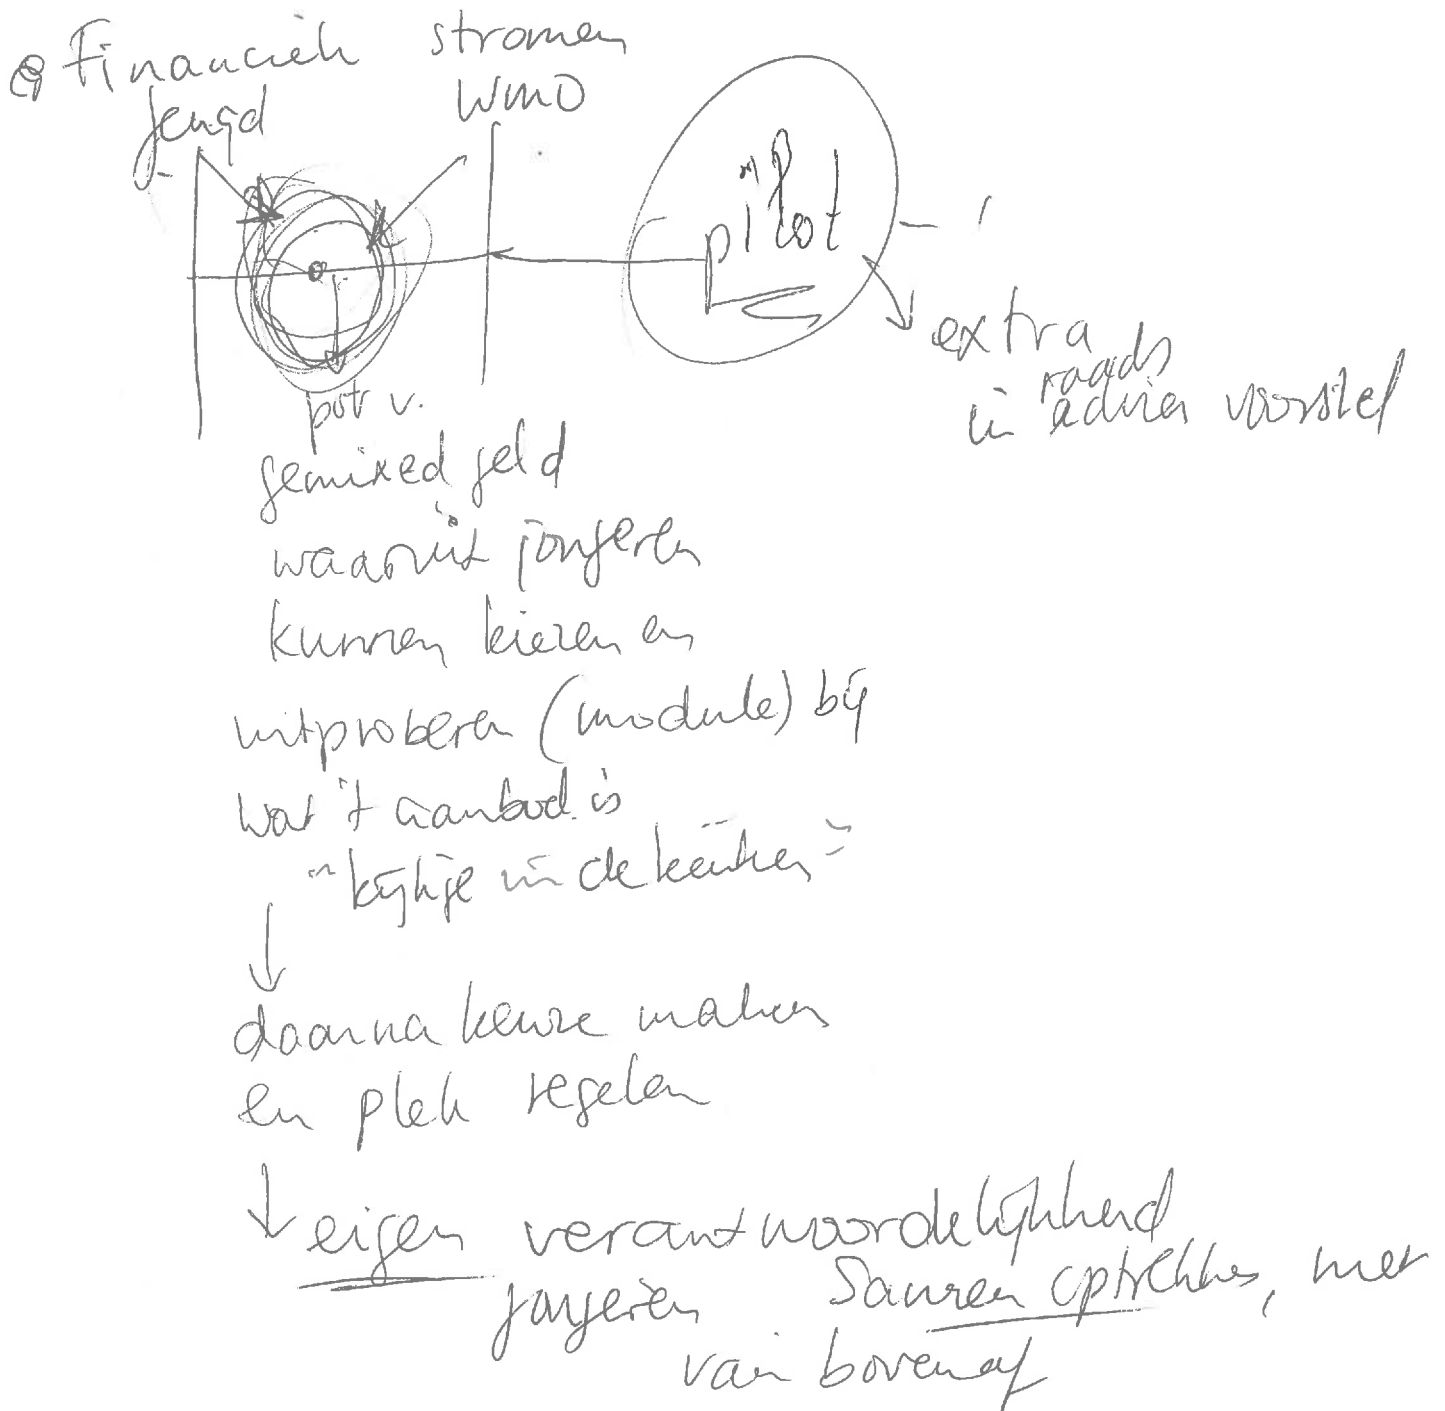 Financiële stromen
jeugd WMO
"pilot
extra
in raads
advies voorstel
pot v.
gemixed geld
waaruit jongeren
kunnen kiezen en
uitproberen (module) bij
wat 't aanbod is
"kijkje in de keuken"
daarna keuze maken
en plek regelen
eigen verantwoordelijkheid
jongeren Samen optrekken, niet
van bovenaf